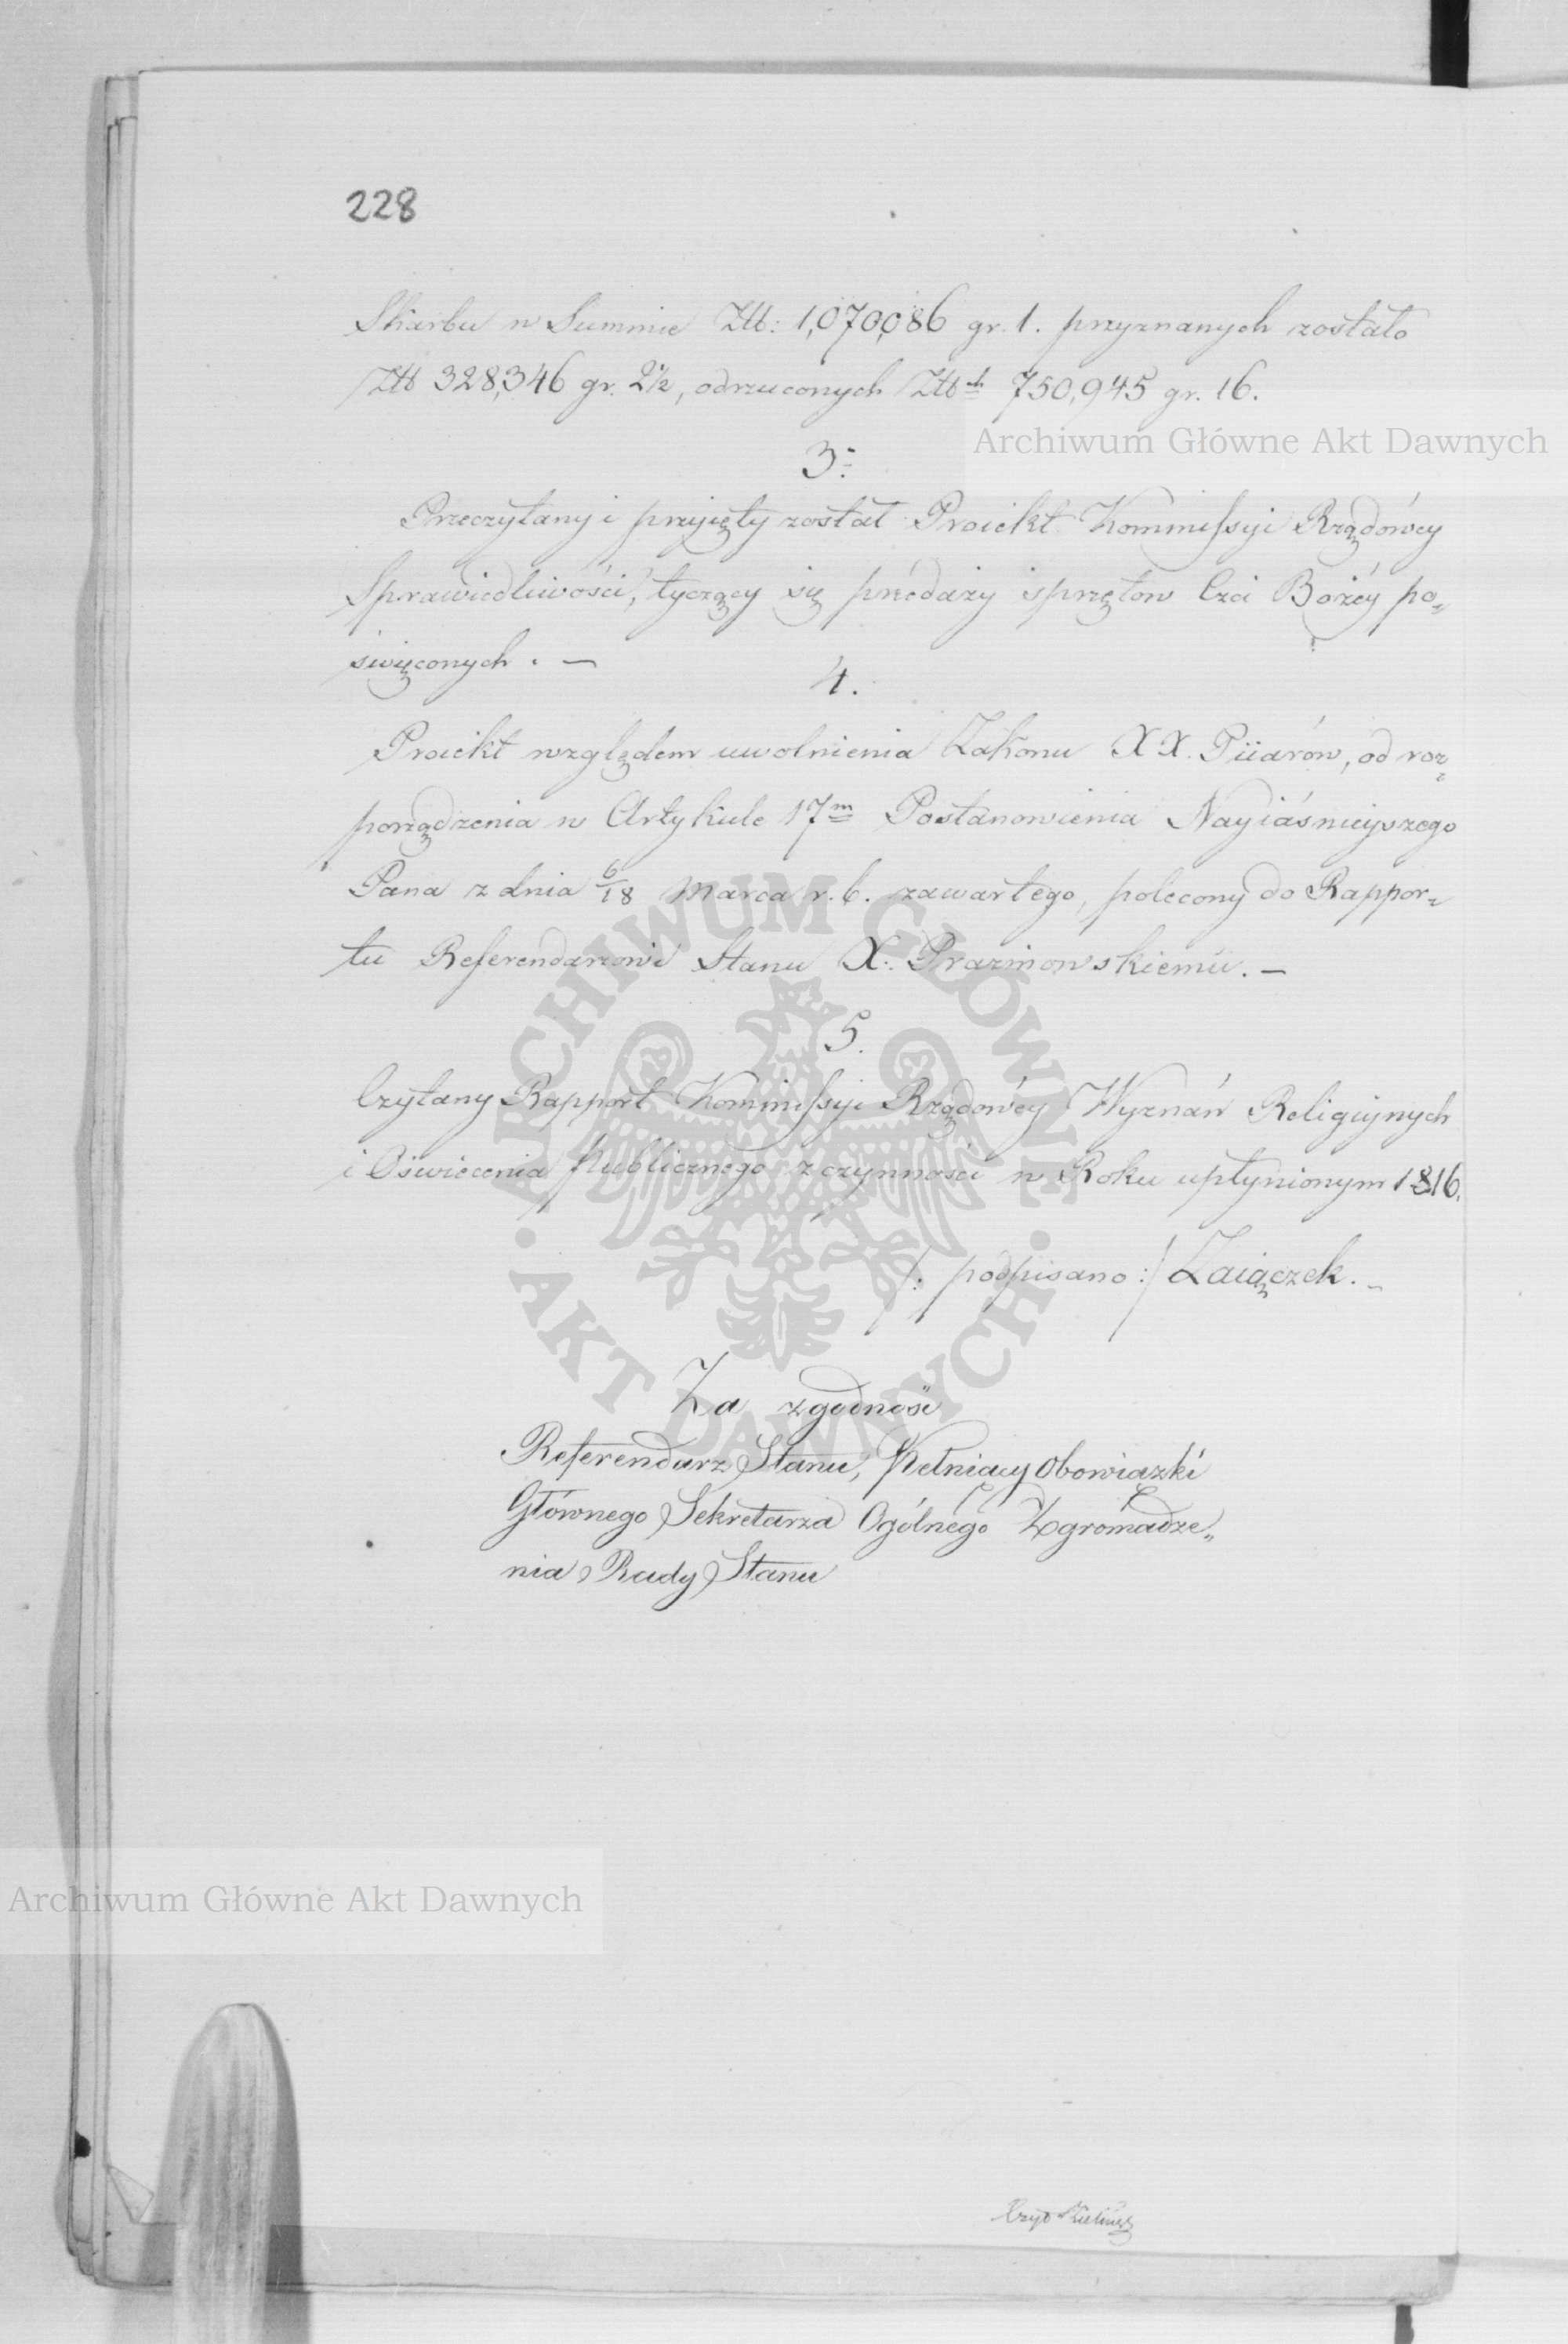 228
Skarbu w Summie Złł: 1,070,086 gr. 1. przyznanych zostało
Złł 328,346 gr. 2½, odrzuconych Złłch 750,945 gr. 16.
Archiwum Główne Akt Dawnych
3.
Przeczytany i przyięty został Proiekt Kommissyi Rządówey
Sprawiedliwości, tyczący się przedaży sprzętow Czci Bożéy po„
święconych. —
4.
Proiekt względem uwolnienia Zakonu XX. Piiarów, od roz„
porządzenia w Artykule 17m Postanowienia Nayiáśnieyszego
Pana z dnia 6/18 Marca r. b. zawartego, polecony do Rappor„
tu Referendarzowi Stanu X: Prazmowskiemu. —
5.
Czytany Rapport Kommissyi Rządowéy Wyznań Religiynych
i Oświecenia Publicznego z czynności w Roku upłynionym 1816.
/: podpisano :/ Zaiączek. —
ARCHIWUM GŁÓWNE · AKT DAWNYCH ·
Za zgodność
Referendarz Stanu, Pełniący Obowiązki
Głównego Sekretarza Ogólnego Zgromadze„
nia Rady Stanu
Archiwum Główne Akt Dawnych